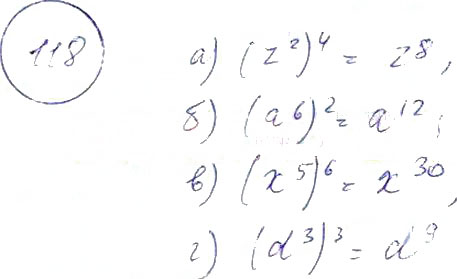 118 а) (z²)⁴ = z⁸,
б) (a⁶)² = a¹²;
в) (x⁵)⁶ = x³⁰,
г) (d³)³ = d⁹